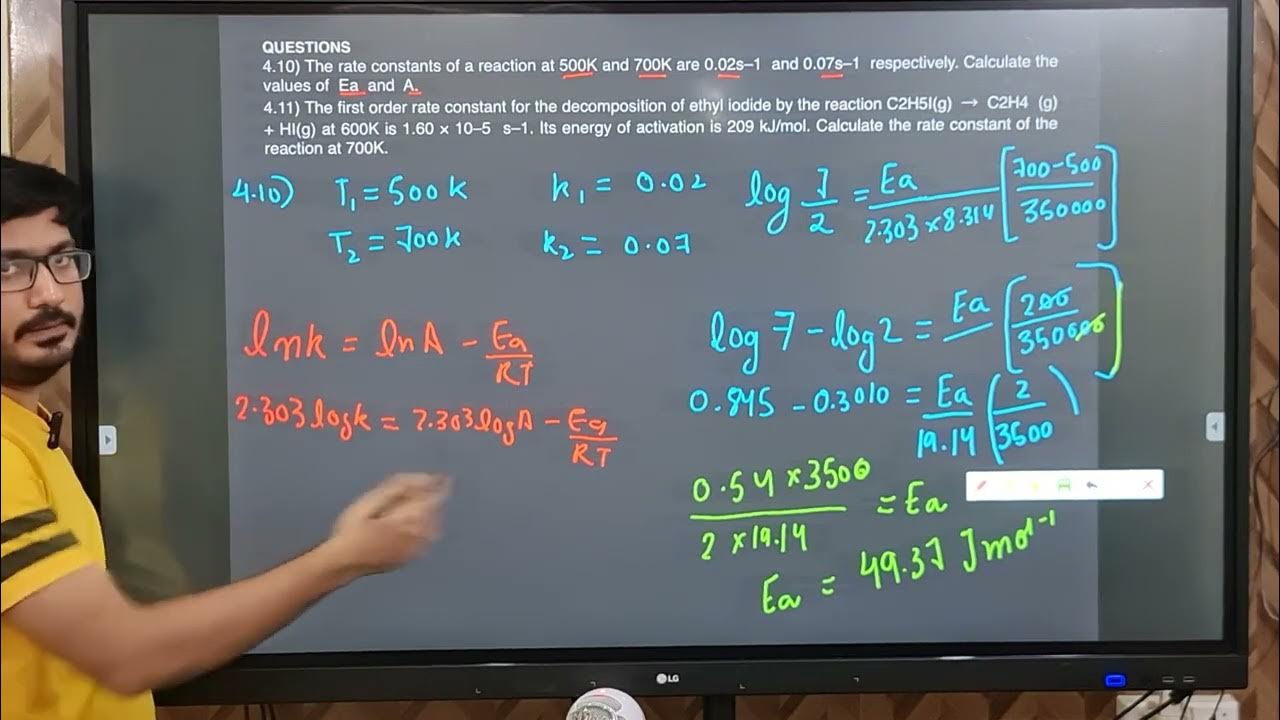 QUESTIONS
4.10) The rate constants of a reaction at 500K and 700K are 0.02s–1 and 0.07s–1 respectively. Calculate the
values of Ea and A.
4.11) The first order rate constant for the decomposition of ethyl iodide by the reaction C2H5I(g) → C2H4 (g)
+ HI(g) at 600K is 1.60 × 10–5 s–1. Its energy of activation is 209 kJ/mol. Calculate the rate constant of the
reaction at 700K.
4.10) T₁ = 500 K k₁ = 0.02
T₂ = 700 K k₂ = 0.07
log 7/2 = Ea/2.303 × 8.314 [700-500/350000]
ln k = ln A - Ea/RT
2.303 log k = 2.303 log A - Ea/RT
log 7 - log 2 = Ea/ [200/350000]
0.845 - 0.3010 = Ea/19.14 (2/3500)
0.54 × 3500/2 × 19.14 = Ea
Ea = 49.37 J mol⁻¹
LG